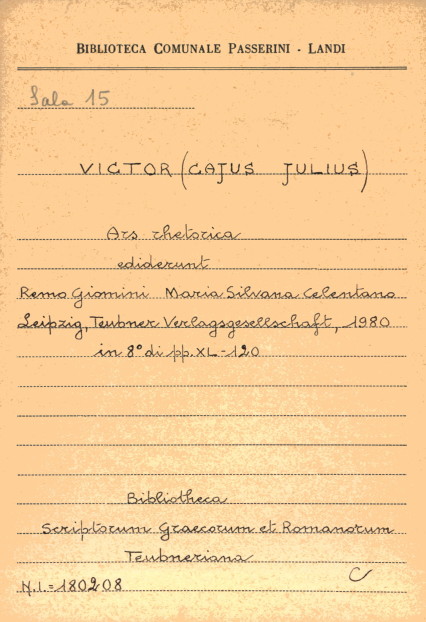 BIBLIOTECA COMUNALE PASSERINI - LANDI
Sala 15
VICTOR (CAJUS JULIUS)
Ars rhetorica
ediderunt
Remo Giomini Maria Silvana Celentano
Leipzig, Teubner Verlagsgesellschaft, 1980
in 8° di pp. XL-120
Bibliotheca
Scriptorum Graecorum et Romanorum
Teubneriana
N.I.=180208
C